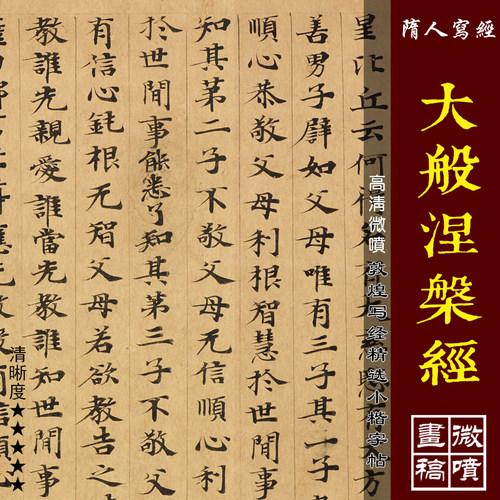 隋人寫經
大般涅槃經
微噴
畫稿
高清微噴 敦煌写经精选小楷字帖
清晰度★★★★★
丘云何
善男子辟如父母唯有三子其一子
順心恭敬父母利根智慧於世
知其第二子不敬父母无信順心
於世間事能悉了知其第三子不
有信心鈍根无智父母若欲教告之
教誰先親愛誰當先教誰知世間